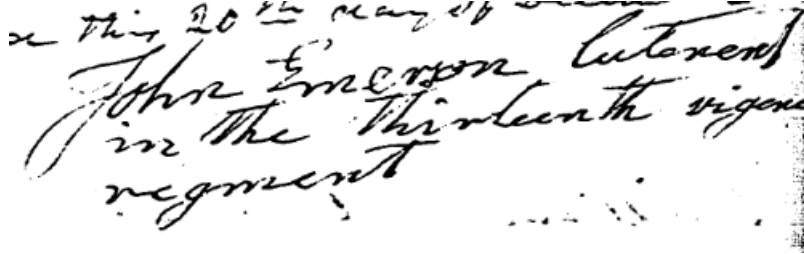 this 20th day of
John Emerson lutenent
in the thirteenth
regment